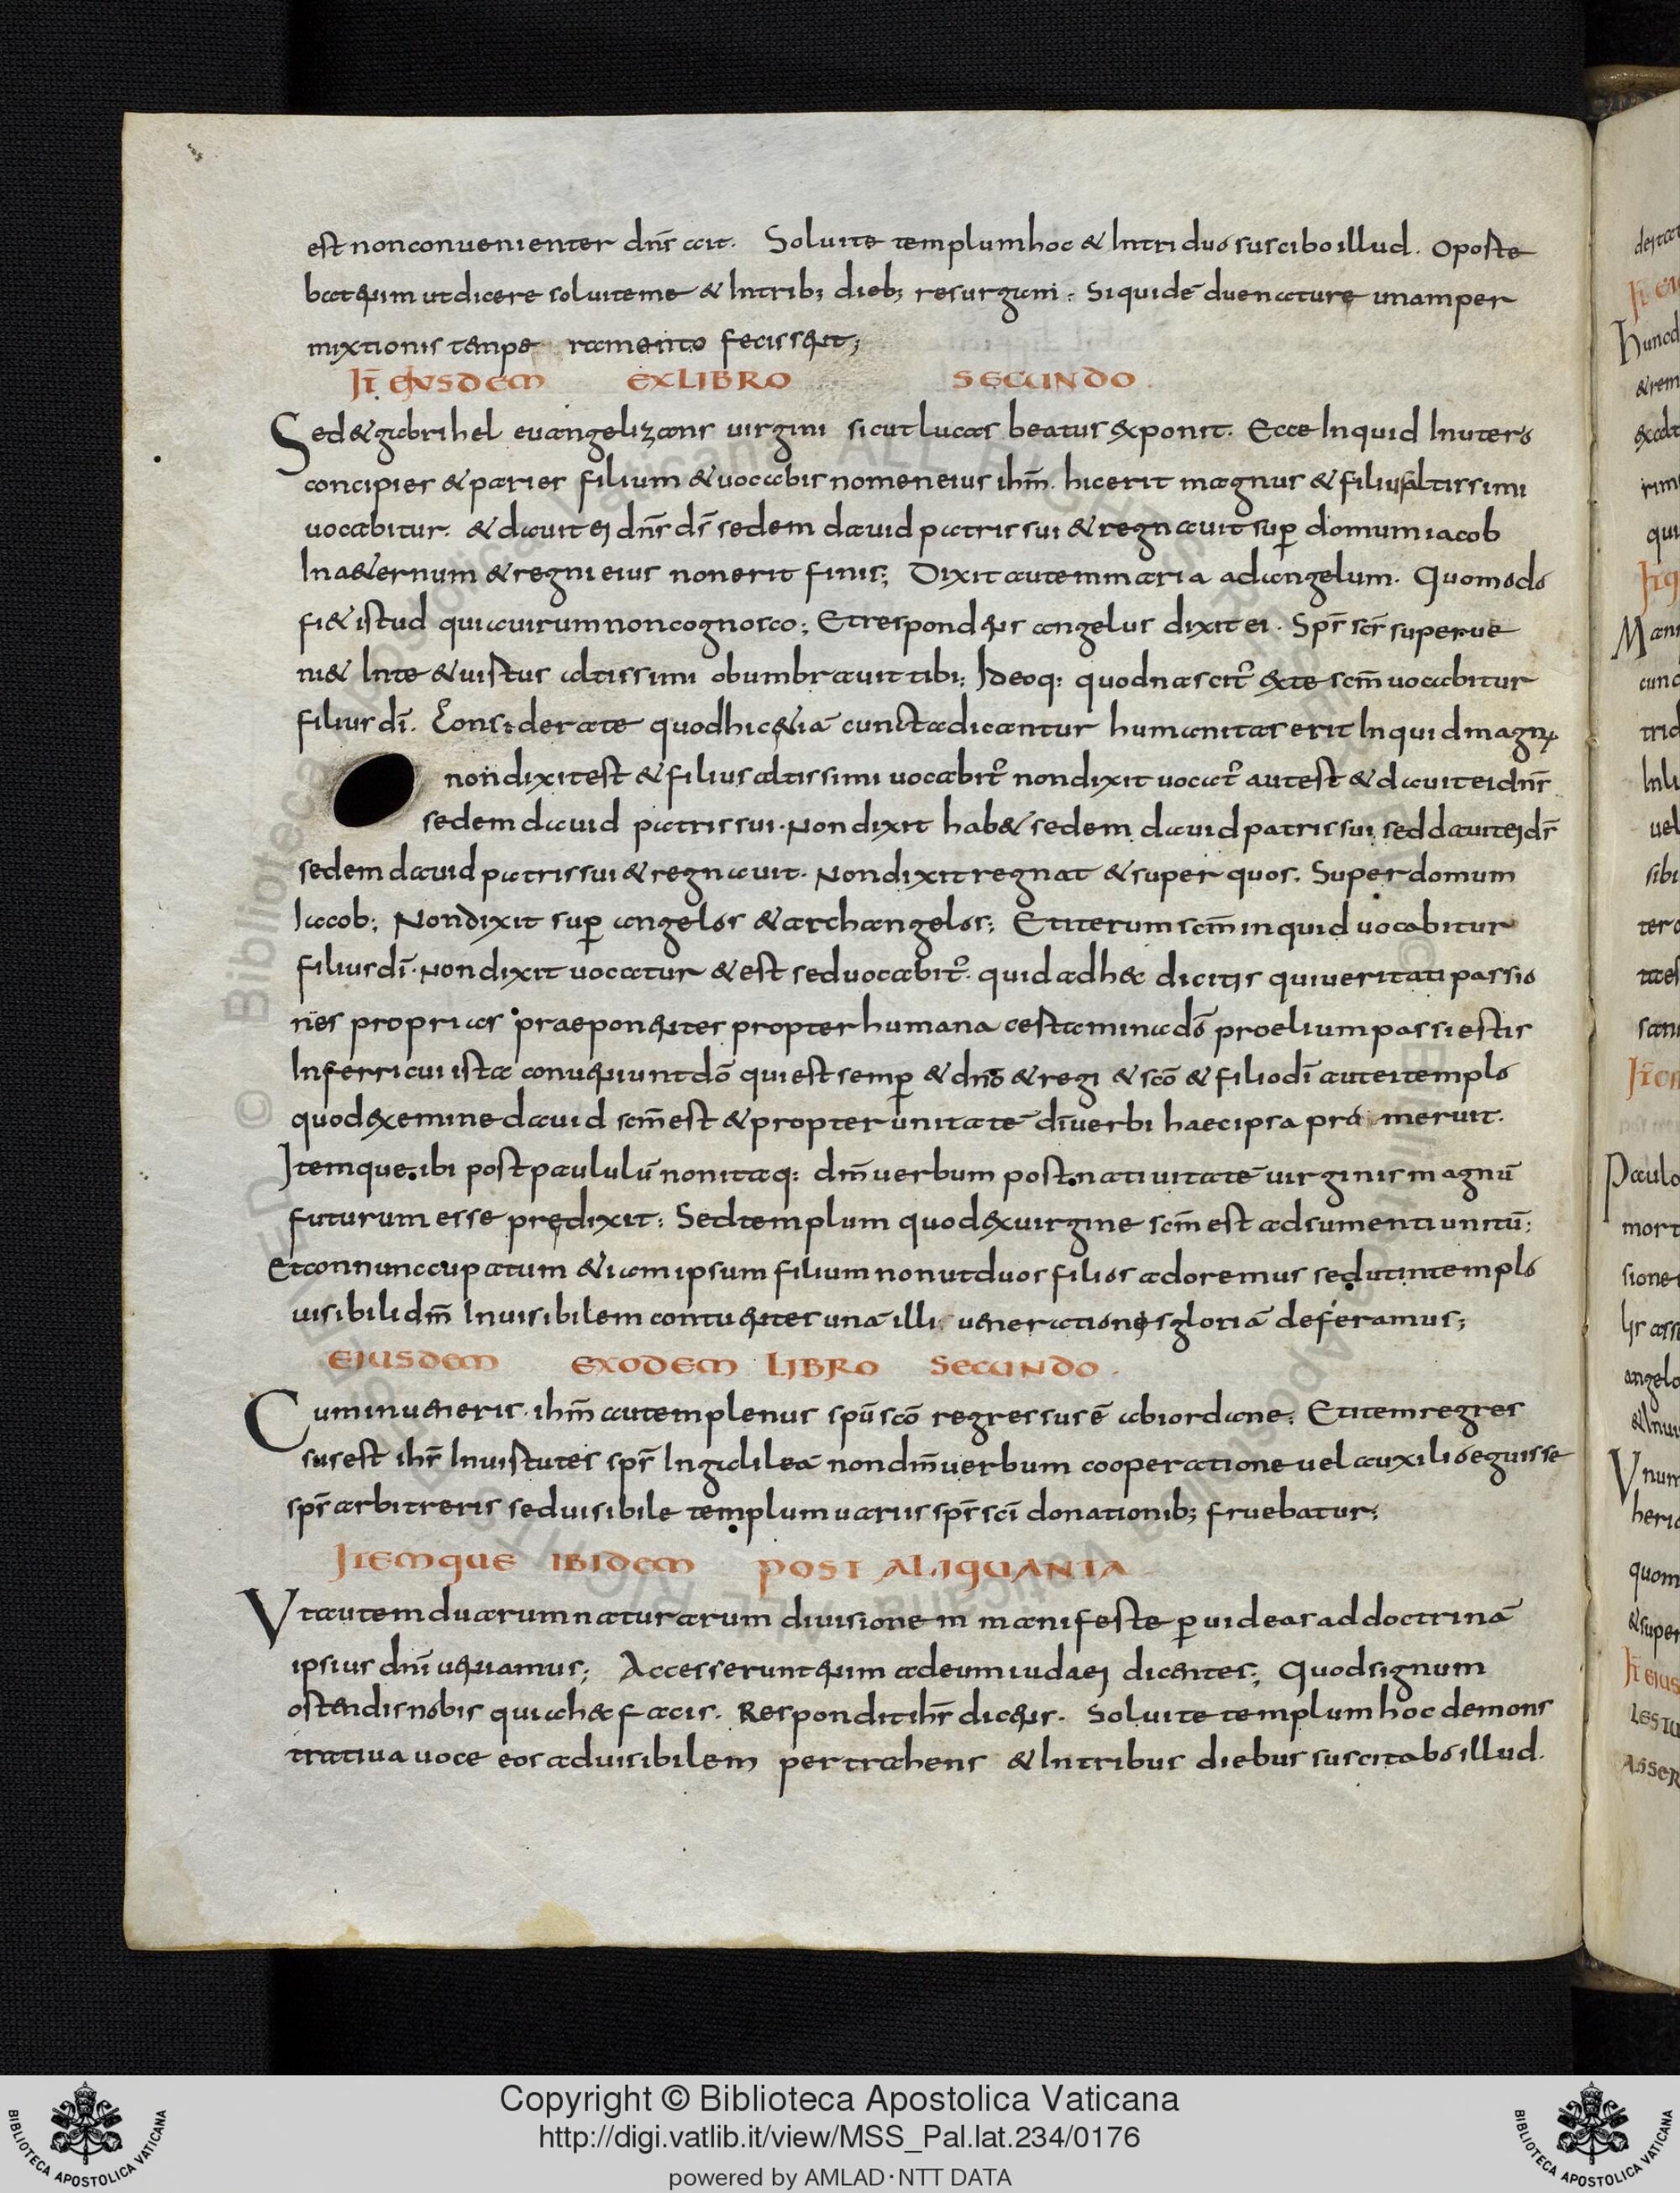 est nonconuenienter dn̄s ait. Soluite templumhoc & Intriduo suscitboillud. oporte
bat enim utdicere soluiteme & Intrib; dieb; resurgam. Siquidē duenature unamper
mixtionis tempe ramento fecissent;
IT̄ EIUSDEM EXLIBRO SECUNDO.
Sed&gabrihel euangelizans uirgini sicutlucas beatus exponit. Ecce Inquid Inutero
concipies & paries filium &uocabis nomeneius ihm̄. hicerit magnus & filiusaltissimi
uocabitur. & dauit ei dn̄s ds̄ sedem dauid patris sui & regnauit sup domumiacob
Ina&ernum & regni eius nonerit finis; Dixit autemmaria adangelum. Quomodo
fi& istud quiauirumnoncognosco; Etrespondens angelus dixit ei. Sps̄ scs̄ superue
ni& Inte &uirtus altissimi obumbrauit tibi; Ideoq; quodnascit̄ exte scm̄ uocabitur
filius dī. Considerate quodhic&iā cunctadicantur humanitas erit Inquid magnus
nondixitest & filius altissimi uocabit̄ nondixit uocat̄ autest & dauiteidn̄s
sedem dauid patris sui. Nondixit hab& sedem dauid patris sui, seddauiteids̄
sedem dauid patris sui & regnauit. Nondixit regnat & super quos. Super domum
Iacob; Nondixit sup angelos & archangelos; Etiterum scm̄ inquid uocabitur
filius dī. Nondixit uocatur & est seduocabit̄. quid adhec dicitis quiueritati passio
nes proprias praeponentes propterhumana certaminadō proelium passi estis
Inferri cui ista conueniuntdō qui est semp & dnō & regi & scō & filiodī autei templo
quodexeminedauid scm̄est & propter unitatē dīuerbi haecipsa pro meruit.
Itemque ibi post paululū nonitaq; dm̄ uerbum post natiuitatē uirginis magnū
futurum esse predixit; Sedtemplum quodexuirgine scm̄ est adsumenti unitū;
Etconnuncupatum &iam ipsum filium nonutduos filios adoremus sedutintemplo
uisibilidm̄ Inuisibilem contuentes unā illi uenerationes gloriā deferamus;
EIUSDEM EXODEM LIBRO SECUNDO.
Cuminueneris. ihm̄ autemplenus spū scō regressus ē abiordane; Etitemregres
susest ihs̄ Inuirtutes sps̄ Ingalileā nondm̄uerbum cooperatione uel auxilio eguisse
sps̄ arbitreris seduisibile templum uariis sps̄ scī donationib; fruebatur;
ITEMQUE IBIDEM POST ALIQUANTA
Vtautemduarumnaturarum diuisionem manifeste puideas ad doctrinā
ipsius dn̄i ueniamus; Accesserunt enim adeumiudaei dicentes; Quodsignum
ostendisnobis quiahec facis. Respondit ihs̄ dicens. Soluite templum hoc demons
tratiua uoce eos aduisibilem pertrahens & Intribus diebus suscitabo illud.
Copyright © Biblioteca Apostolica Vaticana
http://digi.vatlib.it/view/MSS_Pal.lat.234/0176
powered by AMLAD·NTT DATA
BIBLIOTECA APOSTOLICA VATICANA
BIBLIOTECA APOSTOLICA VATICANA